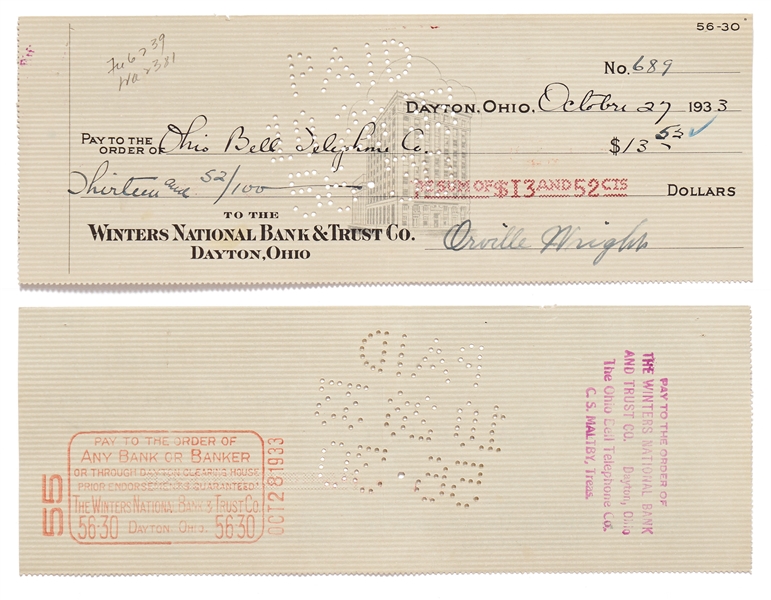 56-30
Fu 6239
Wa 2381
No. 689
DAYTON, OHIO, Octobre 27 1933
PAY TO THE ORDER OF Ohio Bell Telephone Co. $13 52
Thirteen and 52/100 SUM OF $13 AND 52 CTS DOLLARS
TO THE
WINTERS NATIONAL BANK & TRUST CO.
DAYTON, OHIO
Orville Wright
PAID
PAID
PAY TO THE ORDER OF
ANY BANK OR BANKER
OR THROUGH DAYTON CLEARING HOUSE
PRIOR ENDORSEMENTS GUARANTEED
THE WINTERS NATIONAL BANK & TRUST CO.
56-30 DAYTON, OHIO. 56-30
55
OCT 28 1933
PAY TO THE ORDER OF
THE WINTERS NATIONAL BANK
AND TRUST CO. Dayton, Ohio
The Ohio Bell Telephone Co.
C. S. MALTBY, Treas.